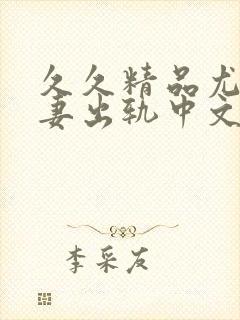 久久精品尤
妻出轨中文
李采友